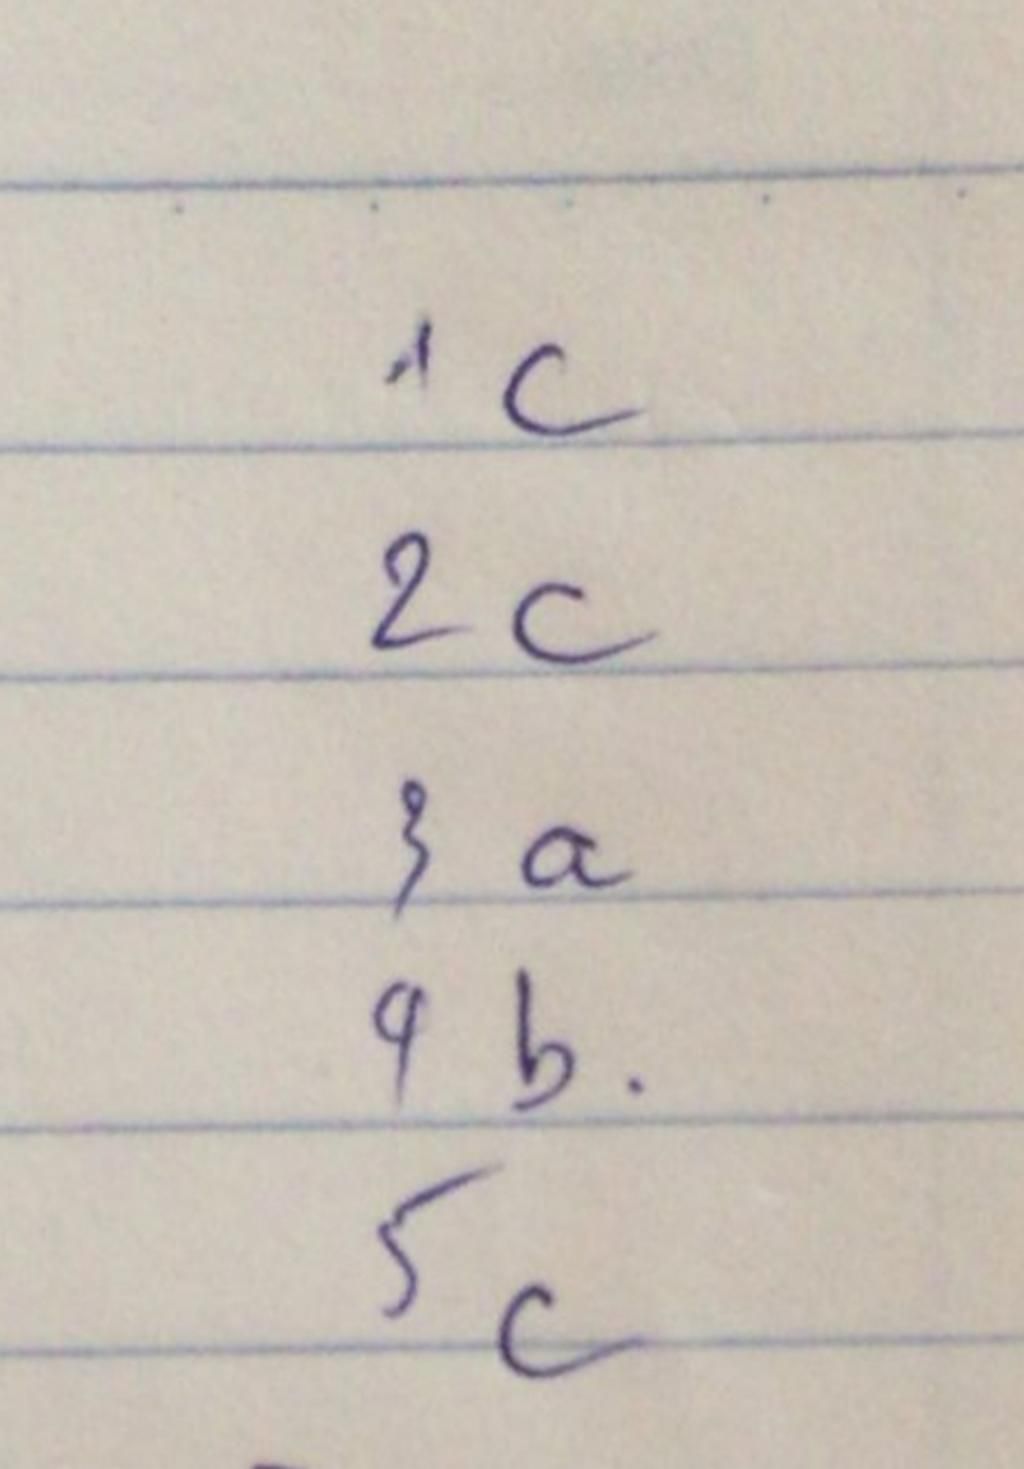 1 c
2 c
3 a
4 b.
5 c